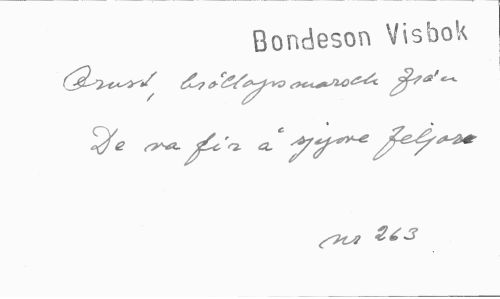 Bondeson Visbok
Orust, bröllopsmarsch från
De va fir å sjyore feljare
nr 263